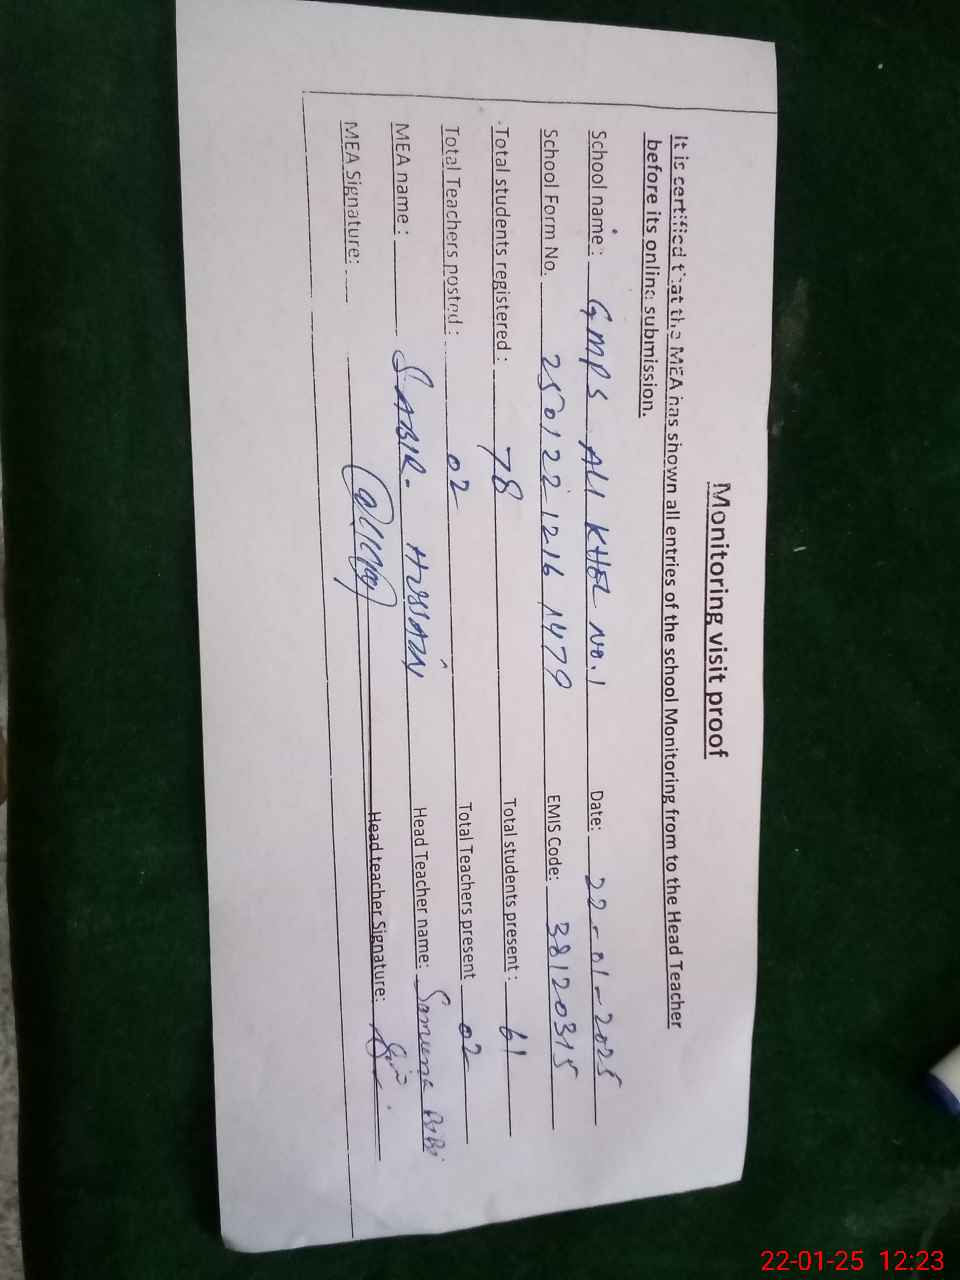 Monitoring visit proof
It is certified that the MEA has shown all entries of the school Monitoring from to the Head Teacher
before its online submission.
School name: GMPS ALI KHEL NO.1 Date: 22-01-2025
School Form No. 250122 1216 1479 EMIS Code: 38120315
Total students registered: 78 Total students present: 61
Total Teachers posted: 02 Total Teachers present 02
MEA name: SABIR. HUSSAIN Head Teacher name: BiBi
MEA Signature: Head teacher Signature:
22-01-25 12:23